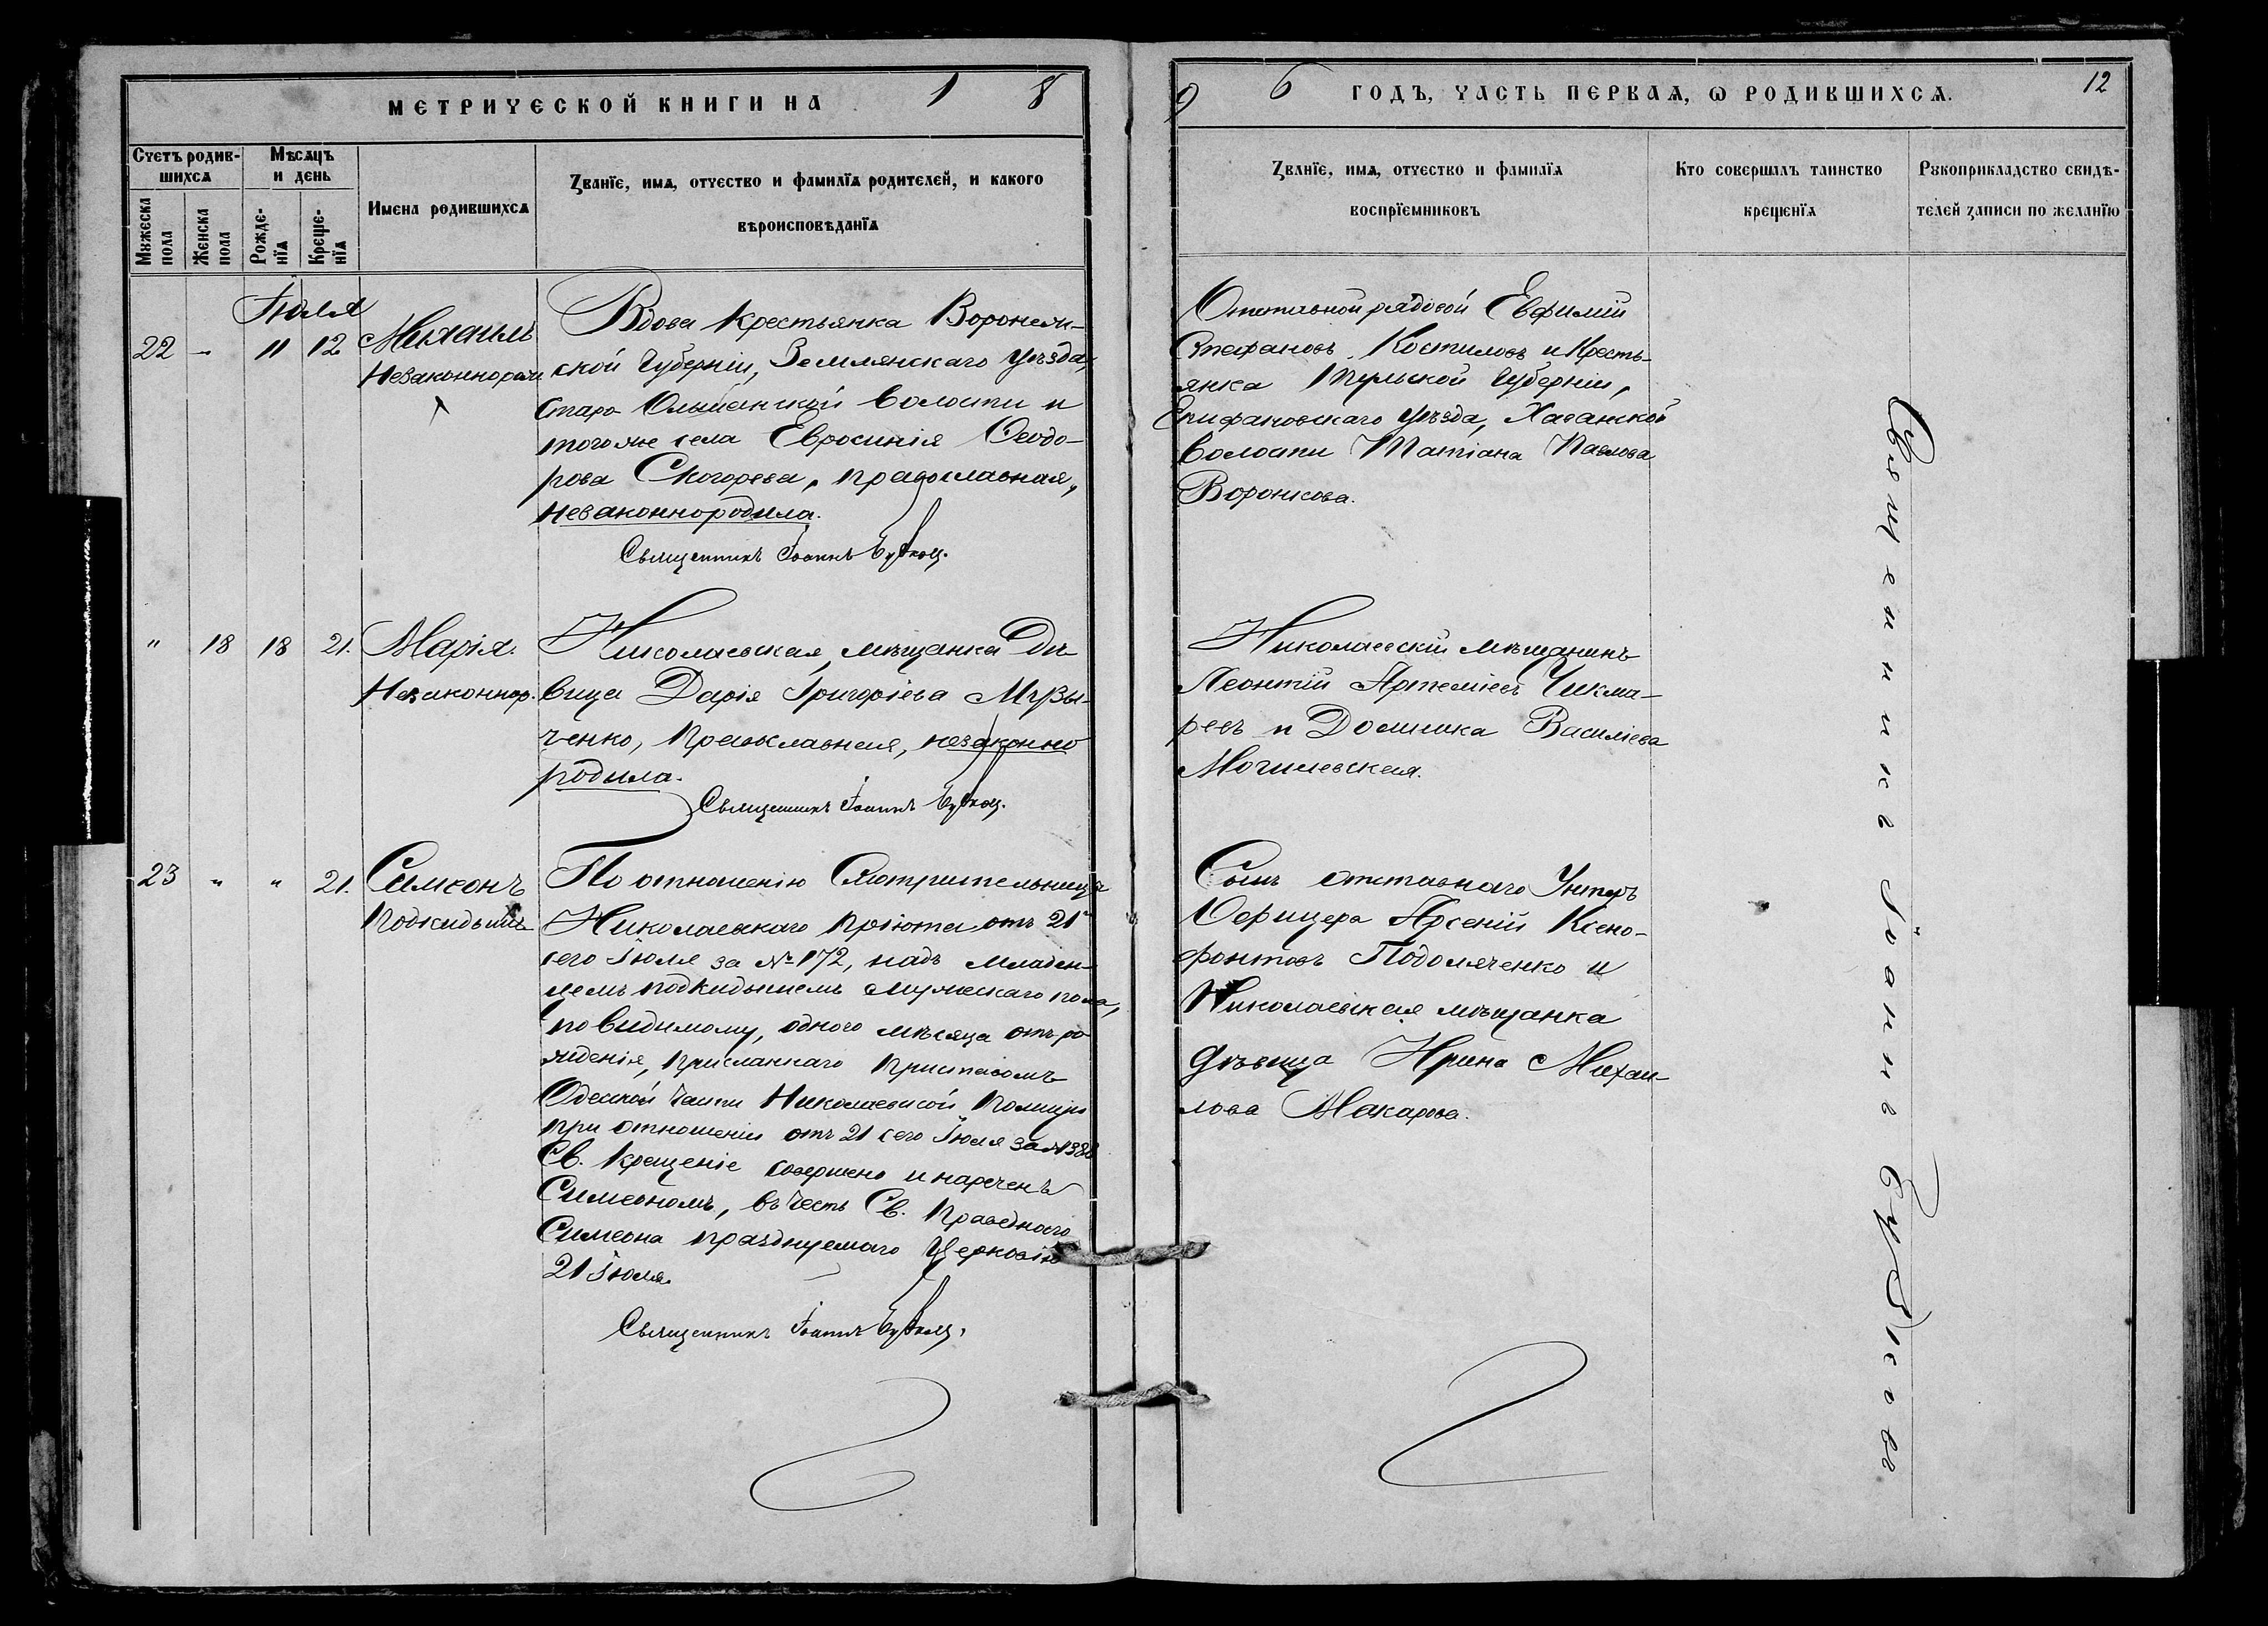 МЕТРИЧЕСКОЙ КНИГИ НА 1 8
9 6 ГОДЪ, ЧАСТЬ ПЕРВАѦ, Ѡ РОДИВШИХСѦ.
12
Счетъ родив-
шихсѧ
Мѣсѧцъ
и день
Имена родившихсѧ
Званїе, имѧ, отчество и фамилїѧ родителей, и какого
вѣроисповѣданїѧ
Мꙋжеска
пола
Женска
пола
Рожде-
нїѧ
Креще-
нїѧ
Званїе, имѧ, отчество и фамилїѧ
воспрїемниковъ
Кто совершалъ таинство
крещенїѧ
Рꙋкоприкладство свидѣ-
телей записи по желанїю
Іюля
22 - 11 12 Михаилъ
Незаконнорож
Вдова крестьянка Воронеж-
ской Губерніи, Землянскаго Уѣзда,
Старо Ольшанской Волости и
тогоже села Евросинія Ѳеодо-
рова Скогорева, православная,
незаконнородила.
Священникъ Іоаннъ
Отставной рядовой Евфимій
Стефановъ Костиловъ и Кресть-
янка Тульской Губерніи,
Епифановскаго Уѣзда,
Волости Татіана Павлова
Воронкова.
" 18 18 21. Марія.
Незаконнор.
Николаевская мѣщанка Дѣ
вица Дарія Григоріева Музы-
ченко, Православная, незаконно
родила.
Священникъ Іоаннъ
Николаевскій мѣщанинъ
Леонтій Артеміевъ Чикма-
ревъ и Домника Василіева
Могилевская.
23 " " 21. Симеонъ
Подкидышъ
По отношенію Смотрительницы
Николаевскаго пріюта отъ 21
сего Іюля за № 172, надъ младен-
цемъ подкидышемъ мужескаго пола,
по видимому, одного мѣсяца отъ ро-
жденія, присланнаго Приставомъ
Одесской части Николаевской Полиціи
при отношеніи отъ 21 сего Іюля за №
Св. Крещеніе совершено и нареченъ
Симеономъ, въ честь Св. Праведнаго
Симеона празднуемаго Церковію
21 Іюля.
Священникъ Іоаннъ
Сынъ отставнаго Унтеръ
Офицера Арсеній Ксено-
фонтовъ Подоляченко и
Николаевская мѣщанка
дѣвица Ирина Михаи-
лова Макарова.
Священникъ Іоаннъ